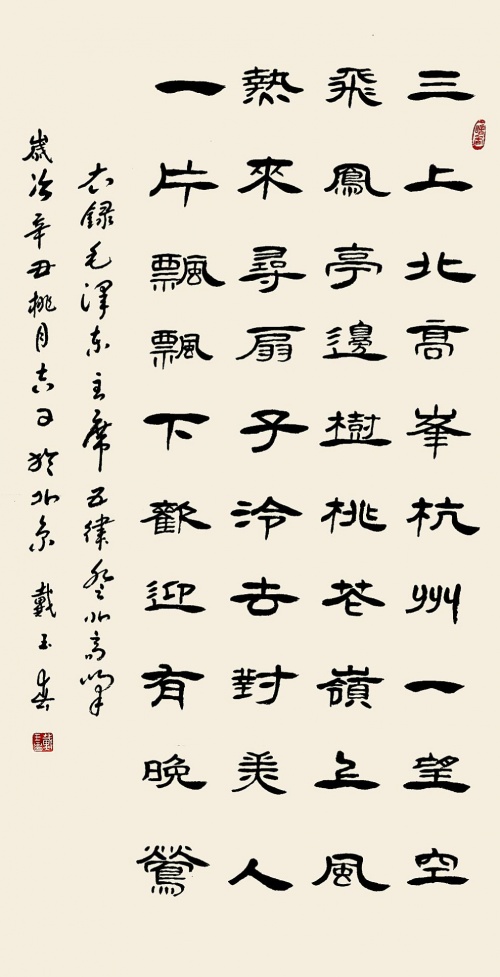 三上北高峯杭州一望空
飛鳳亭邊樹桃花嶺上風
熱來尋扇子冷去對美人
一片飄飄下歡迎有晚鶯
右錄毛澤东主席五律登北高峰
歲次辛丑桃月吉日於北京 戴玉